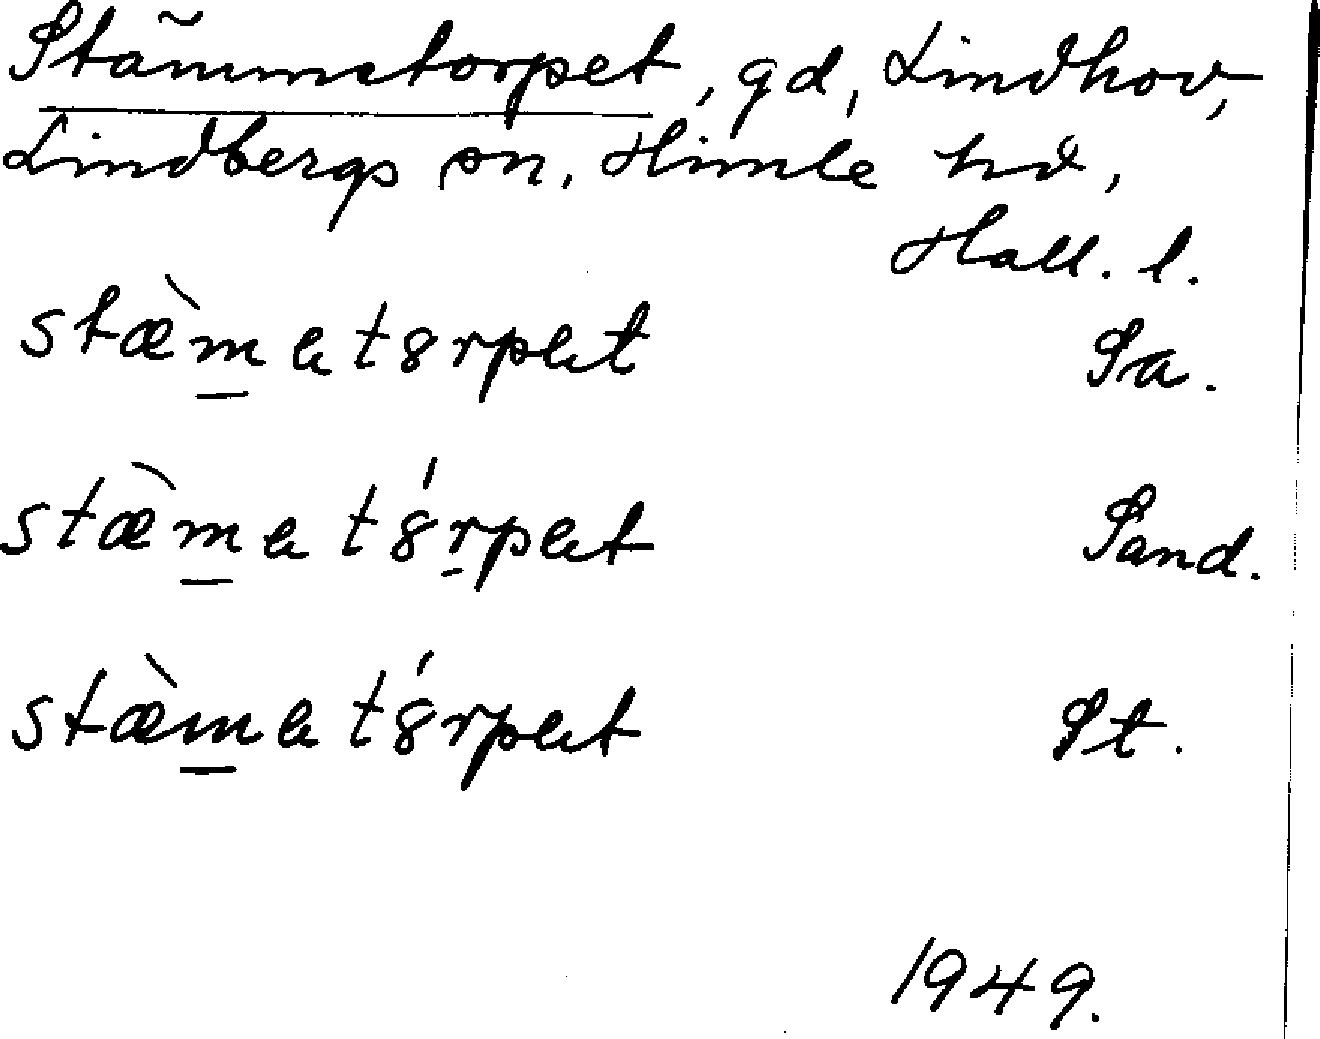 Stämmetorpet, gd, Lindhov,
Lindbergs sn, Himle hd,
Hall. l.
stæ̀m̲et8rpet Sa.
stæ̀m̲et8́r̲pet Sand.
stæ̀m̲et8́rpet St.
1949.